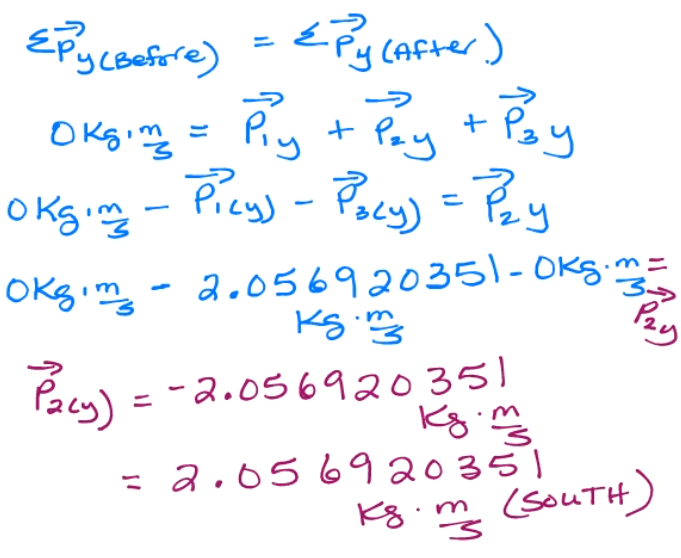 ΣP⃗y(Before) = ΣP⃗y(After)
0 Kg·m/s = P⃗₁y + P⃗₂y + P⃗₃y
0 Kg·m/s - P⃗₁(y) - P⃗₃(y) = P⃗₂y
0 Kg·m/s - 2.056920351 Kg·m/s - 0 Kg·m/s = P⃗₂y
P⃗₂(y) = -2.056920351 Kg·m/s
= 2.056920351 Kg·m/s (SOUTH)